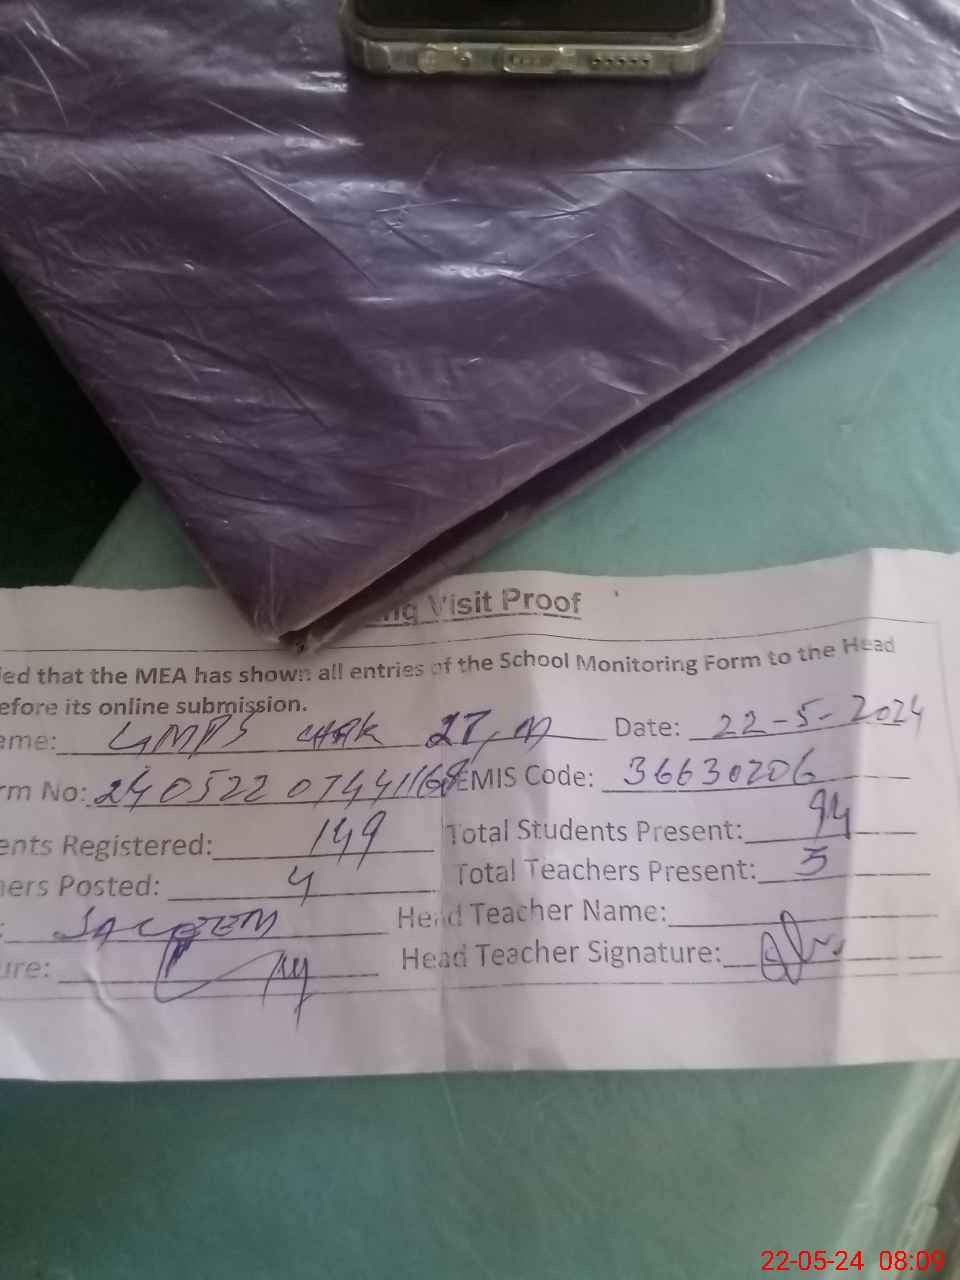 ng Visit Proof
ied that the MEA has shown all entries of the School Monitoring Form to the Head
efore its online submission.
ame: GMPS CHAK 27, M Date: 22-5-2024
rm No: 24052207441168 EMIS Code: 36630206
ents Registered: 149 Total Students Present: 94
ners Posted: 4 Total Teachers Present: 3
Head Teacher Name:
ure: Head Teacher Signature:
22-05-24 08:09